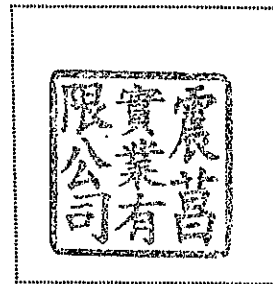 震莒
實業有
限公司